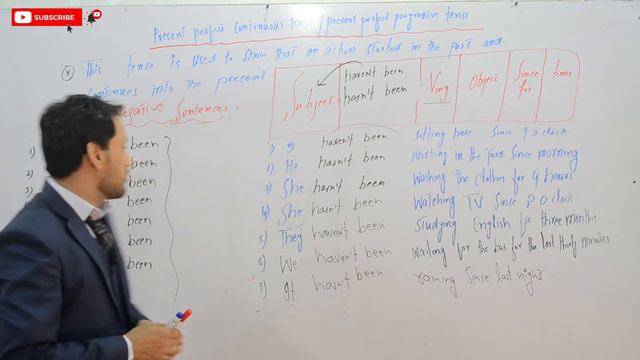 SUBSCRIBE
Present perfect continuous tense / present perfect progressive tense
This tense is used to show that an action started in the past and
continues into the present
Negative Sentences:-
Subject haven't been hasn't been Ving object Since for time
1) I haven't been sitting here since 9 o clock
2) He hasn't been working in the since morning
3) She hasn't been washing the clothes for 4 hours
4) She hasn't been watching TV since o clock
5) They haven't been studying English for three months
6) We haven't been waiting for the bus for the last thirty minutes
7) It hasn't been raining since last night
1) been
2) been
3) been
been
been
been
been